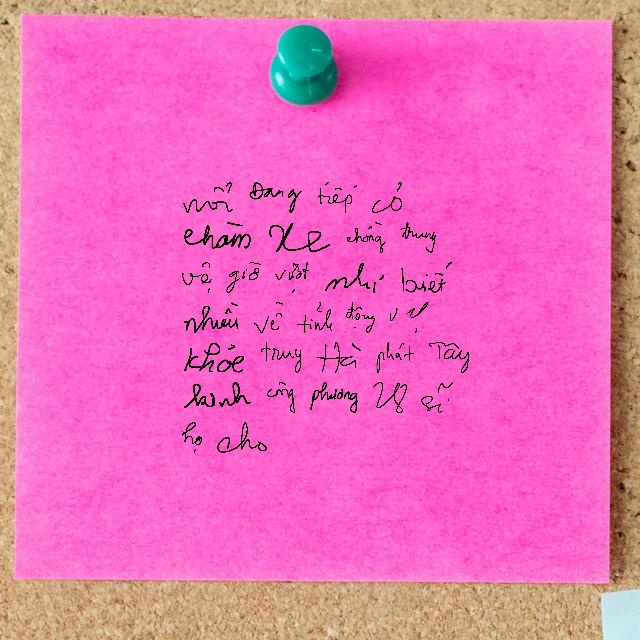 nổi Đang tiếp cỏ
chăm Xe chồng trung
vệ giờ vượt như biết
nhiều về tỉnh động
khỏe trung Hà phát Tây
kinh công phương sĩ
họ cho